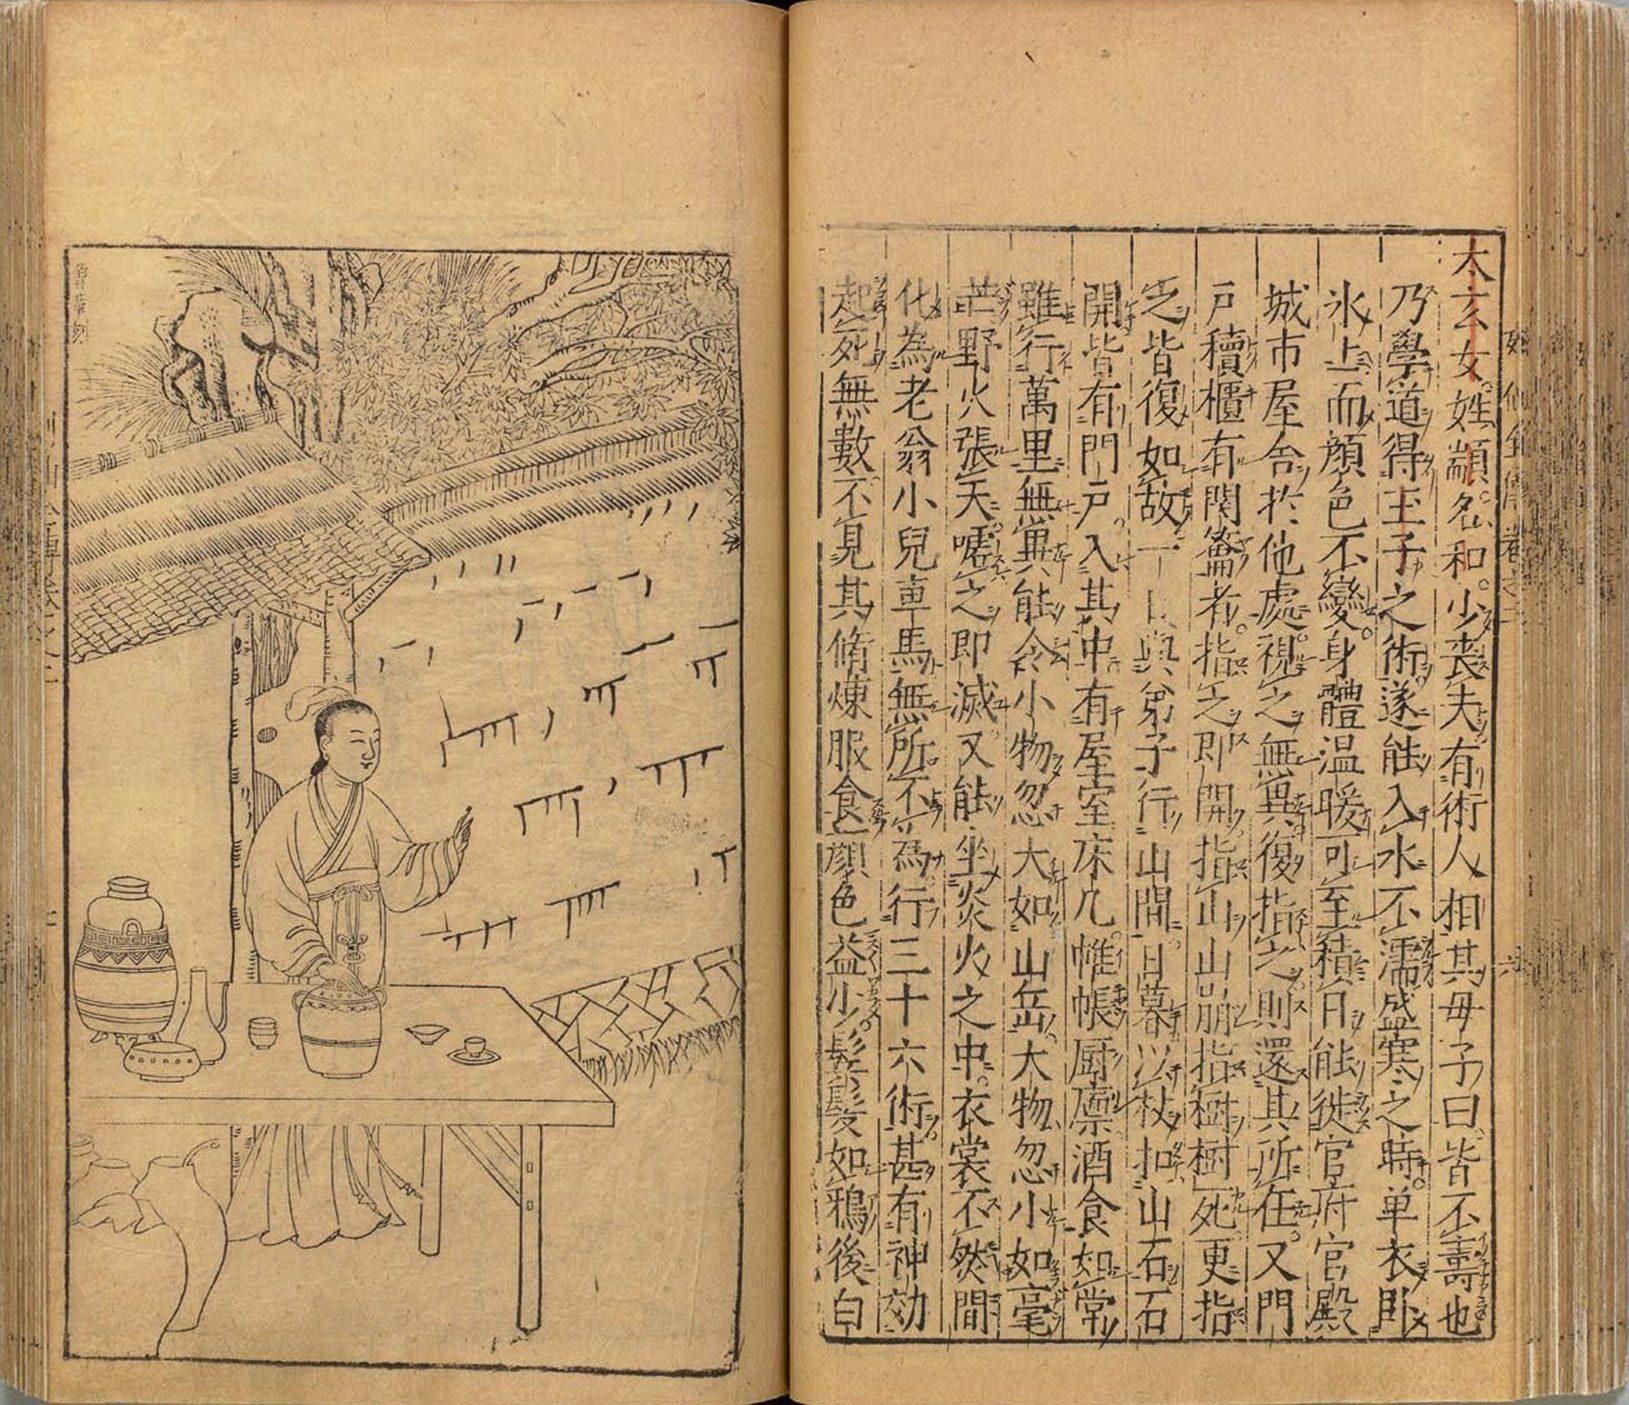 太玄女姓顓名和少喪夫有術人相其母子曰皆不壽也
乃學道得王子之術遂能入水不濡盛寒之時单衣卧
氷上而顔色不變身體温暖可至積日能徙官府宫殿
城市屋舎扵他處視之無異復指之則還其所在又門
戸櫝櫃有関籥者指之即開指山山崩指樹樹死更指
之皆復如故 與弟子行山間日暮以杖扣山石石
開皆有門戸入其中有屋室床几帷帳厨廪酒食如常
雖行萬里無異能令小物忽大如山岳大物忽小如毫
芒野火張天嘘之即滅又能坐炎火之中衣裳不然間
化為老翁小兒車馬無所不為行三十六術甚有神効
起死無數不見其脩煉服食顔色益少髭髮如鴉後白